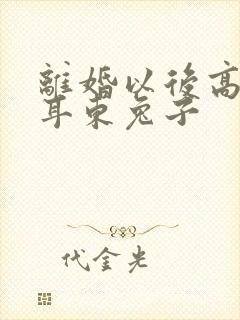 離婚以後高
耳東兔子
代金光